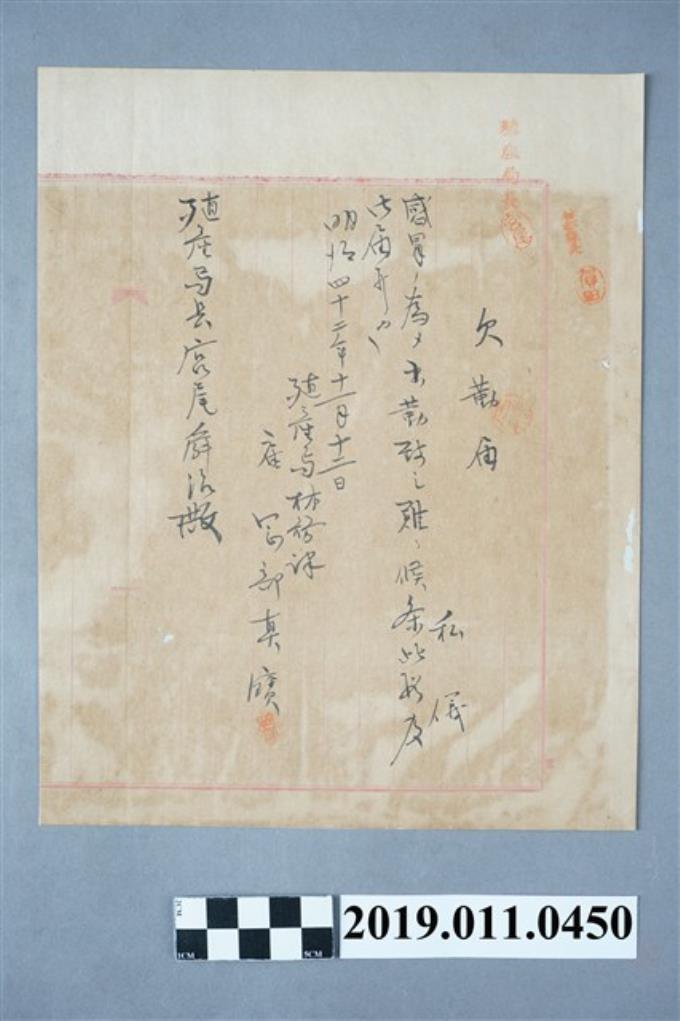 殖産局長
欠勤届
私儀
感冒ノ為メ出勤致シ難ク候条此段及
御届候也
明治四十二年十一月十二日
殖産局林務課
雇 岡部真
殖産局長宮尾舜治殿
1CM
2CM
5CM
2019.011.0450